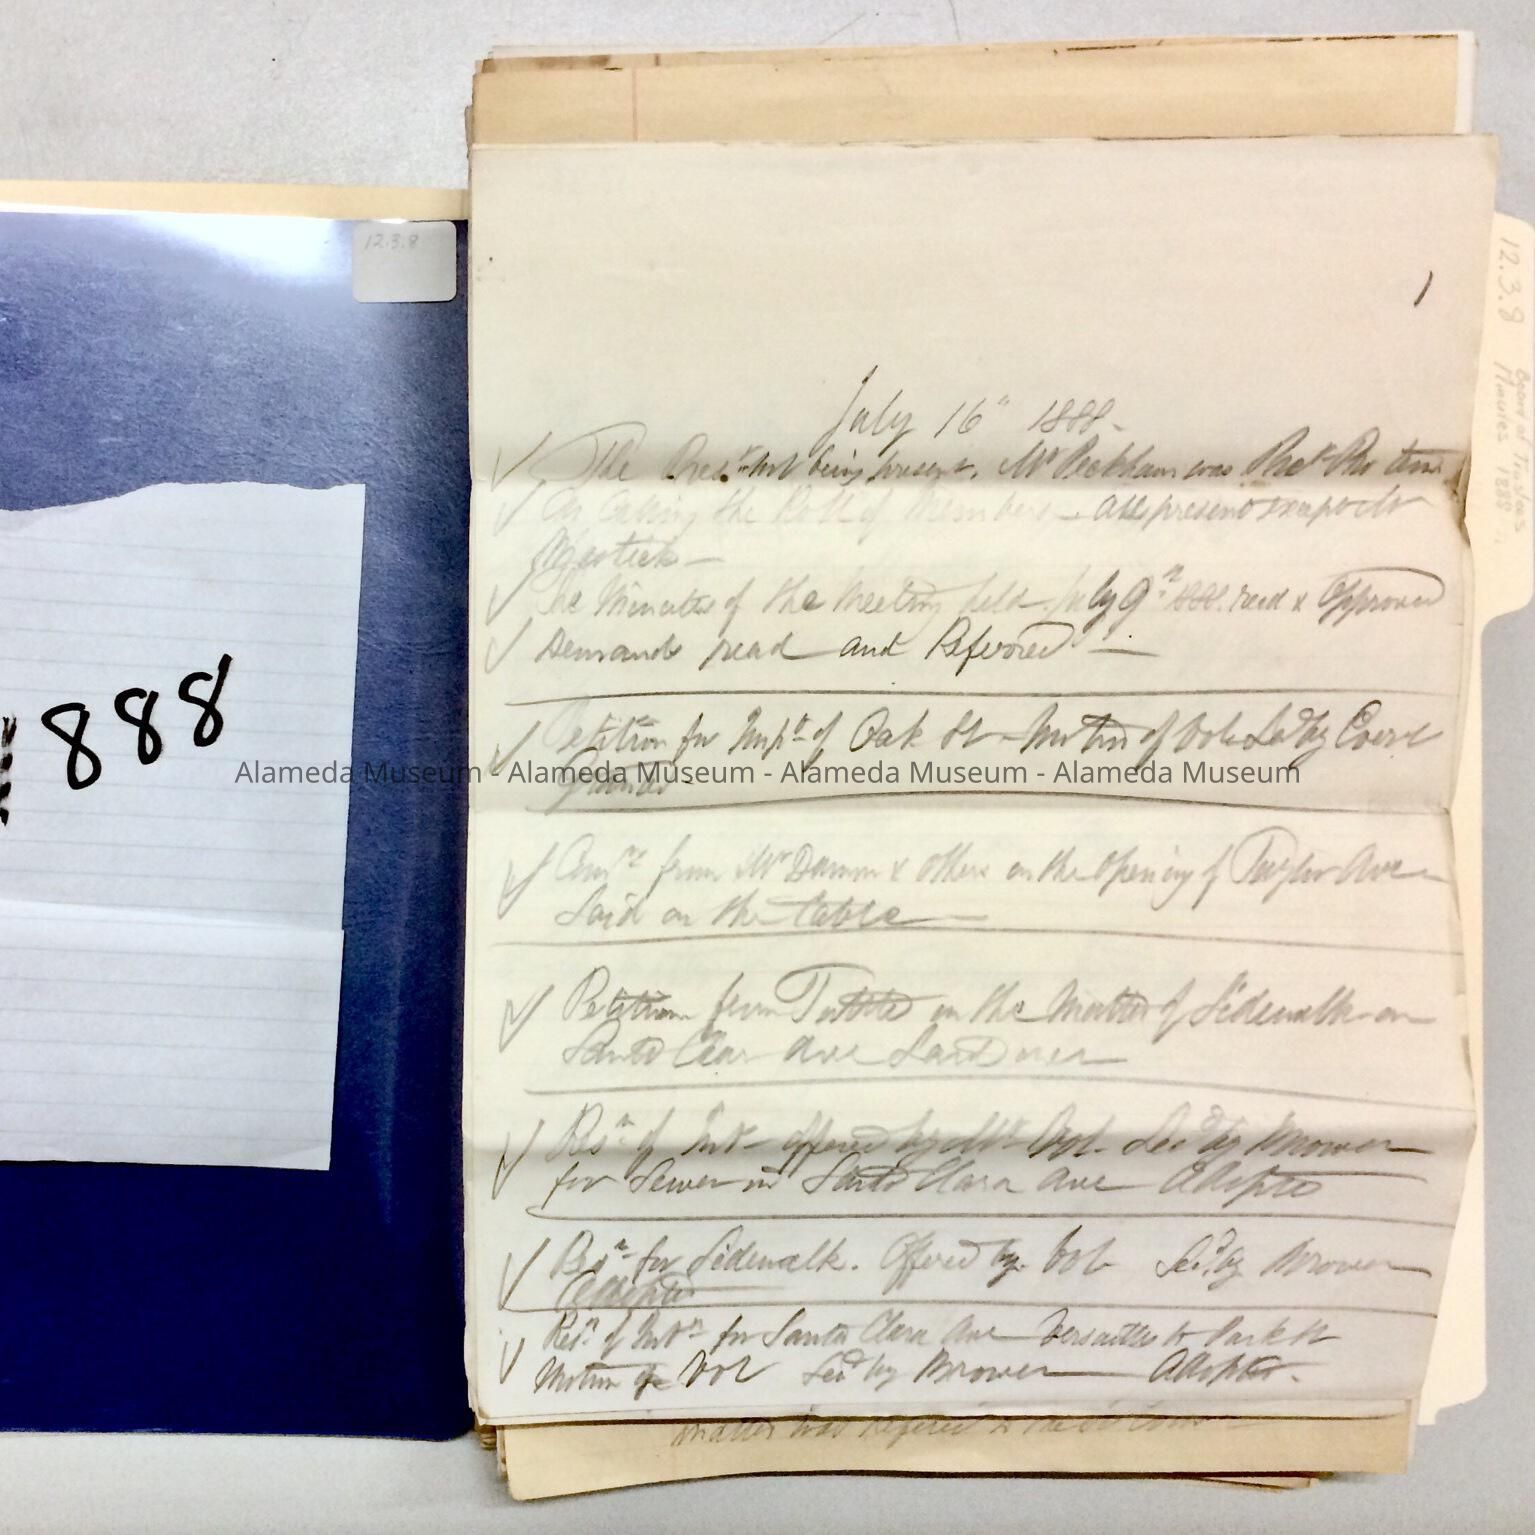 12.3.8
888
12.3.8 Board of Trustees
Minutes 1888
1
July 16" 1888.
The Pres.t not being present, Mr Peckham was Pres Pro tem
On calling the Roll of Members - all present except Mr
Mastick -
The Minutes of the Meeting held July 9th 1888. read & Approved
Demands read and Referred -
Petition for Imp.t of Oak St - Motion of Vol Secd by Court
Granted -
Com.n from Mr Damon & others on the opening of Taylor Ave
Laid on the table
Petition from Tuttle on the Matter of Sidewalk on
Santa Clara Ave Laid over
Res.n of Int - offered by Mr Vol. Secd by Brower
for Sewer in Santa Clara Ave Adopted
Res.n for Sidewalk. Offered by Vol Secd by Brower
Adopted
Res.n of Int.n for Santa Clara Ave Versailles to Park St
Motion of Vol Secd by Brower Adopted.
matter was referred to the
Alameda Museum - Alameda Museum - Alameda Museum - Alameda Museum